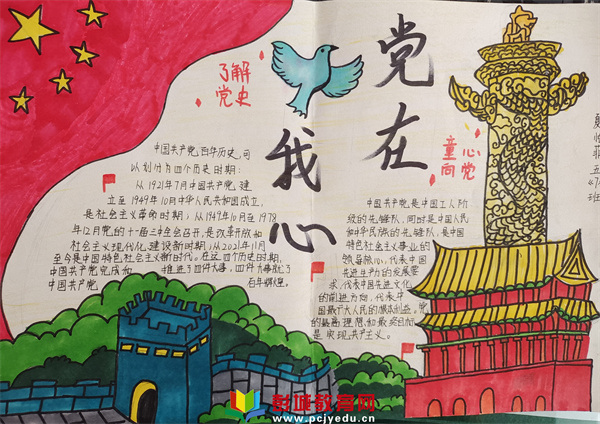 党在
我心
了解
党史
童心
向党
中国共产党百年历史可
以划分为四个历史时期:
从1921年7月中国共产党建
立至1949年10月中华人民共和国成立,
是社会主义革命时期;从1949年10月至1978
年12月党的十一届三中全会召开,是改革开放和
社会主义现代化建设新时期;从2021年11月
至今是中国特色社会主义新时代。在这四个历史时期,
中国共产党完成和推进了四件大事,四件大事
中国共产党百年辉煌。
中国共产党是中国工人阶
级的先锋队,同时是中国人民
和中华民族的先锋队,是中国
特色社会主义事业的
领导核心,代表中国
先进生产力的发展要
求,代表中国先进文化
的前进方向,代表中
国最广大人民的根本利益。党
的最高理想和最终目标
是实现共产主义。
五
班
彭城教育网
www.pcjyedu.cn